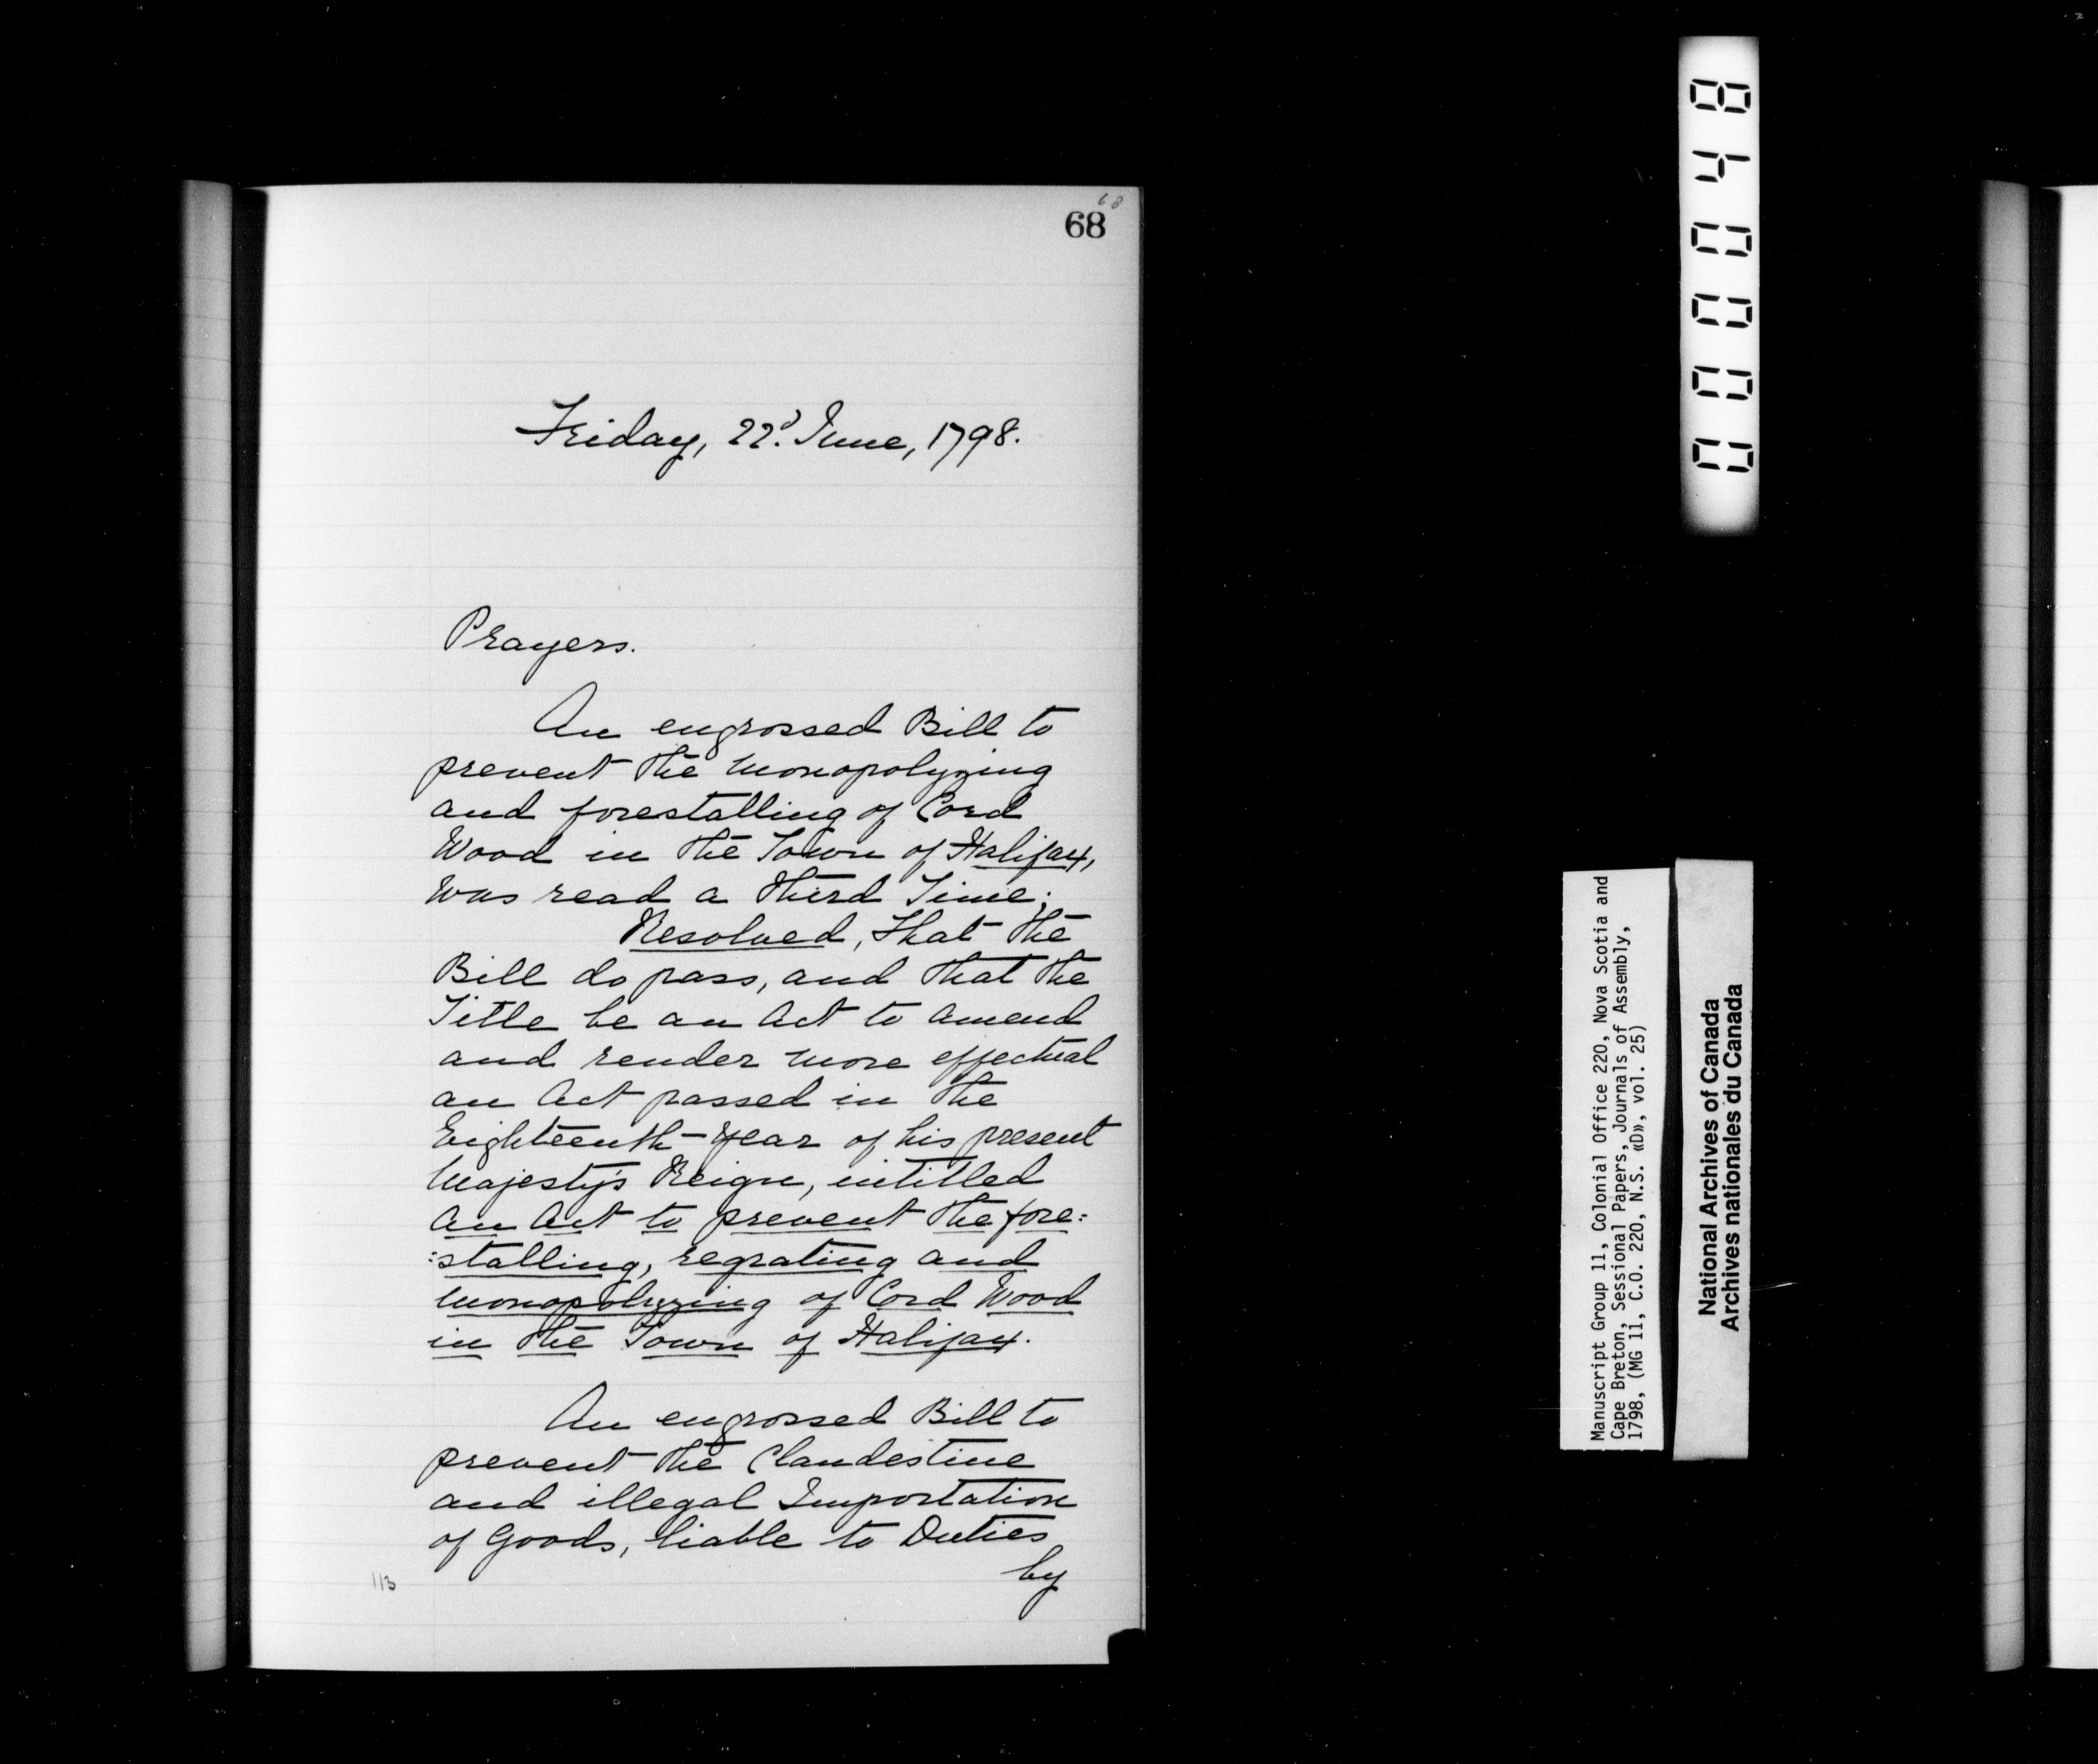 68
68
Friday, 22d. June, 1798.
Prayers.
An engrossed Bill to
prevent the monopolyzing
and forestalling of Cord
Wood in the Town of Halifax,
was read a third Time;
Resolved, That the
Bill do pass, and that the
Title be an Act to amend
and render more effectual
an Act passed in the
Eighteenth Year of his present
Majesty's Reign, intitled
An Act to prevent the fore:
:stalling, regrating and
monopolyzing of Cord Wood
in the Town of Halifax.
An engrossed Bill to
prevent the Clandestine
and illegal Importation
of Goods, liable to Duties
by
113
000048
Manuscript Group 11, Colonial Office 220, Nova Scotia and
Cape Breton, Sessional Papers, Journals of Assembly,
1798, (MG 11, C.O. 220, N.S. «D», vol. 25)
National Archives of Canada
Archives nationales du Canada